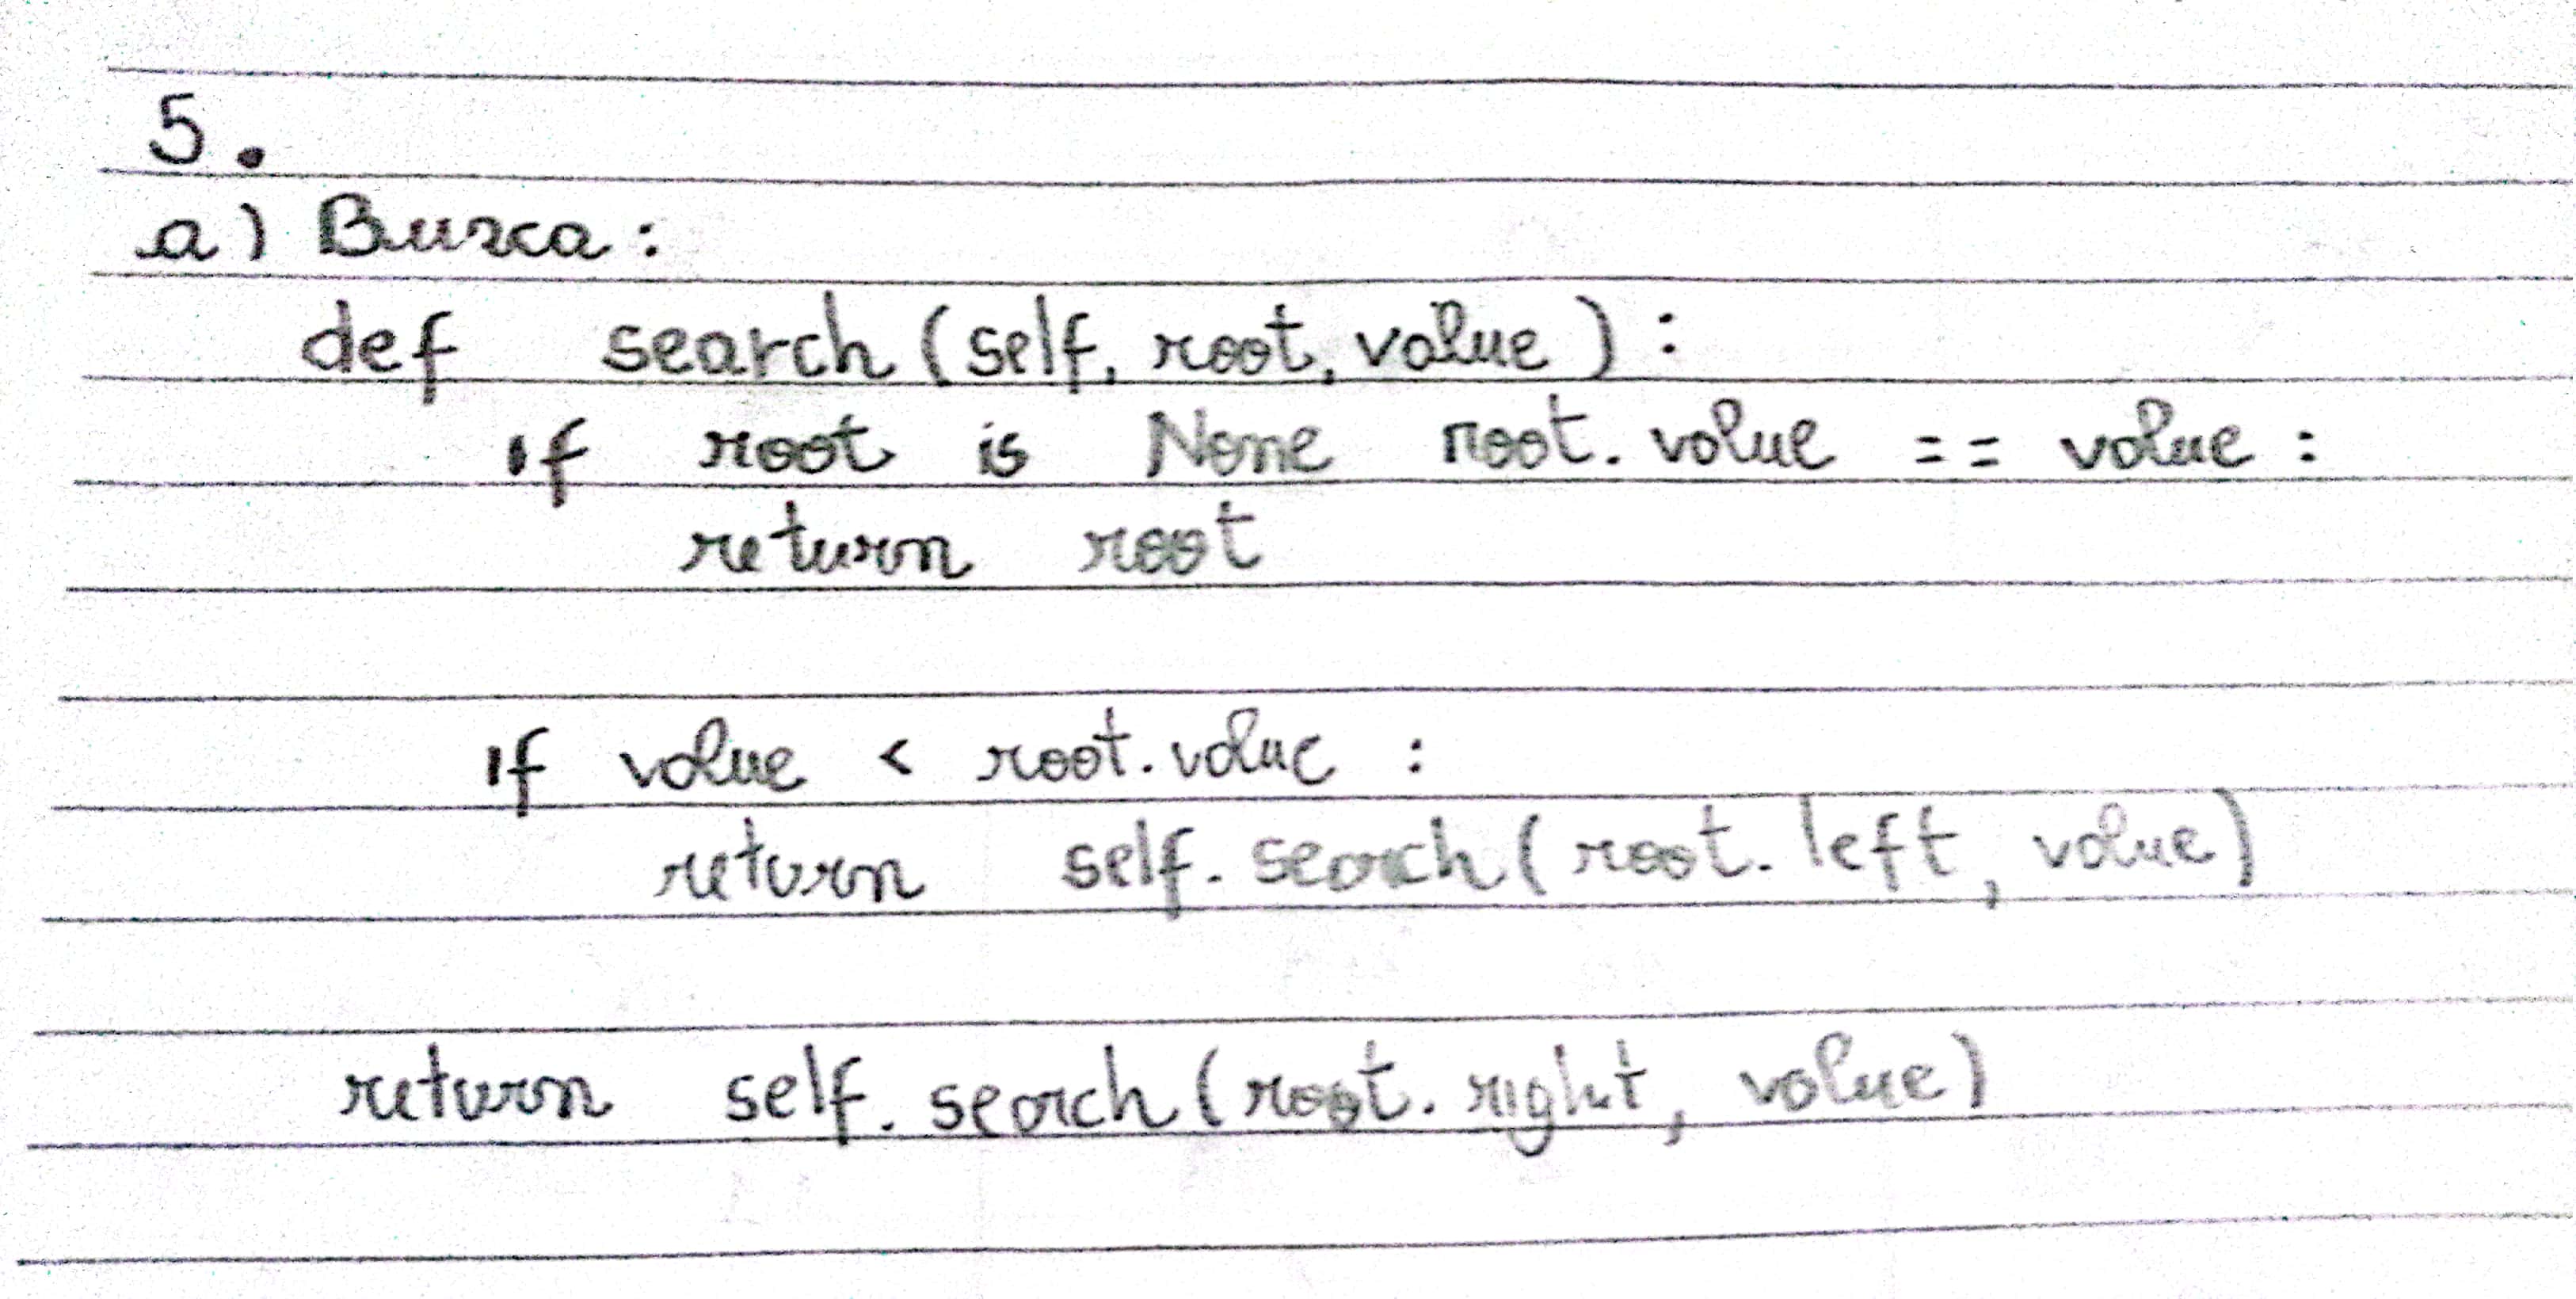 5.
a) Busca:
def search (self, root, value):
if root is None root.value == value:
return root
if value < root.value :
return self.search( root.left, value)
return self.search (root.right, value)